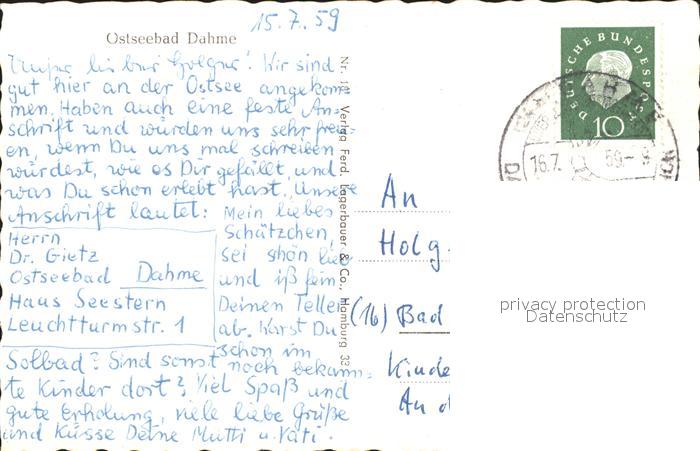 15.7.59
Ostseebad Dahme
Unser lieber Holger! Wir sind
gut hier an der Ostsee angekom-
men. Haben auch eine feste An-
schrift und würden uns sehr freu-
en, wenn Du uns mal schreiben
würdest, wie es Dir gefällt und
was Du schon erlebt hast. Unsere
Anschrift lautet:
Herrn
Dr. Gietz
Ostseebad Dahme
Haus Seestern
Leuchtturmstr. 1
Mein liebes
Schätzchen,
sei schön lieb
und iß fein
Deinen Teller
ab. Warst Du
schon im
Solbad? Sind sonst noch bekann-
te Kinder dort? Viel Spaß und
gute Erholung, viele liebe Grüße
und Küsse Deine Mutti u. Vati.
Verlag Ferd. Lagerbauer & Co., Hamburg 33
DEUTSCHE BUNDESPOST
10
16.7. 59-9
An
Holg
(16) Bad
Kinde
An d
privacy protection
Datenschutz